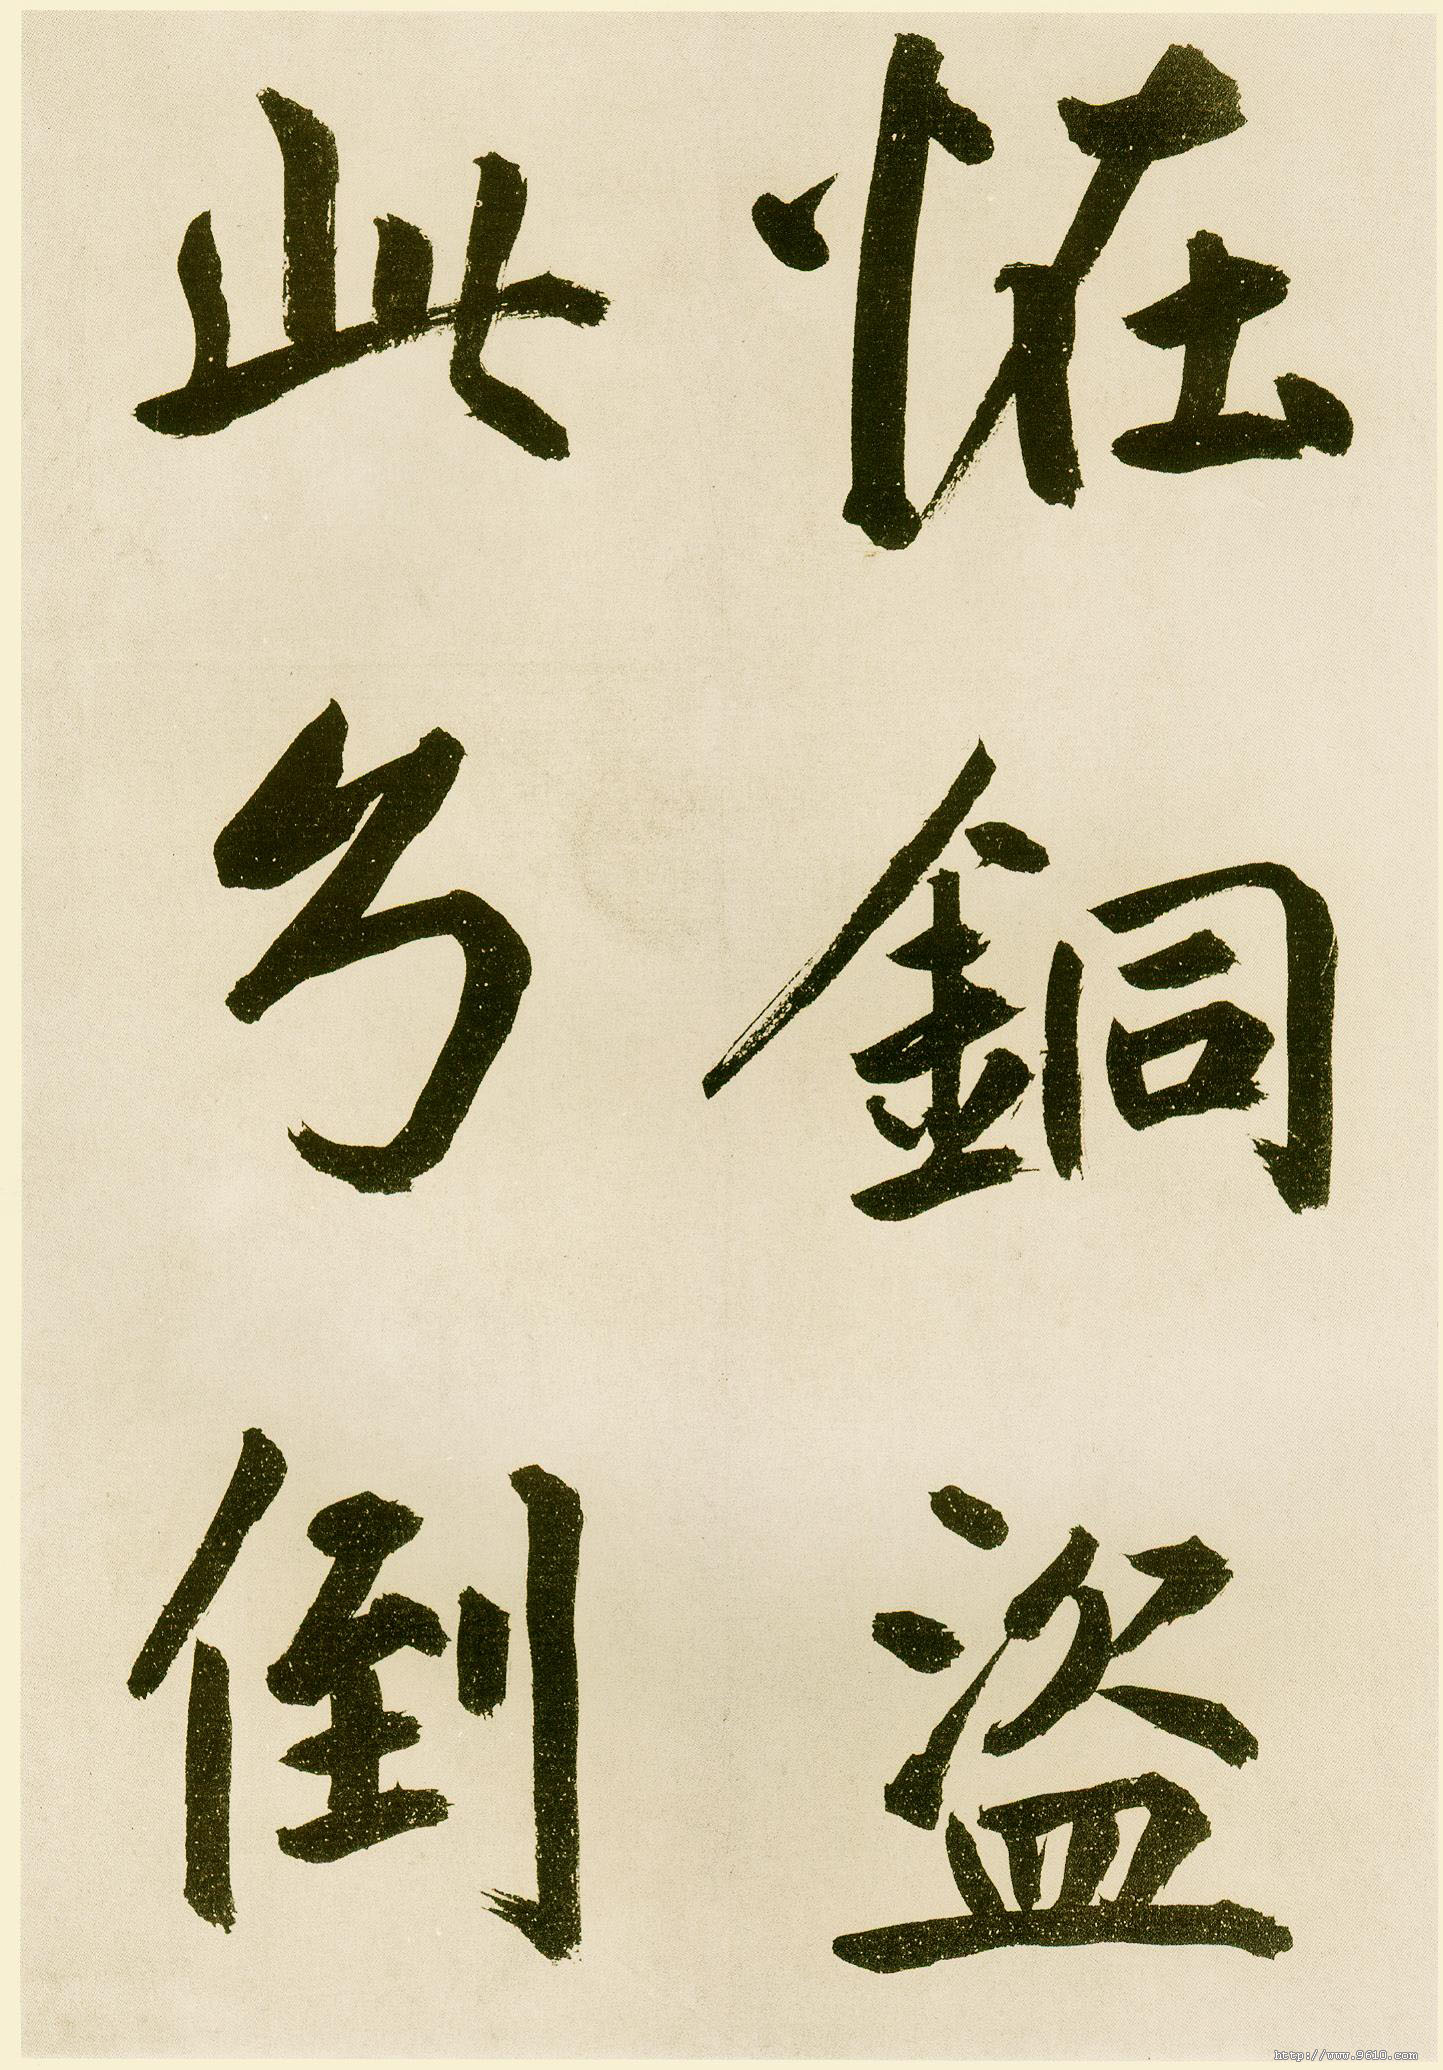 恠銅盜
此兮倒
http://www.9610.com